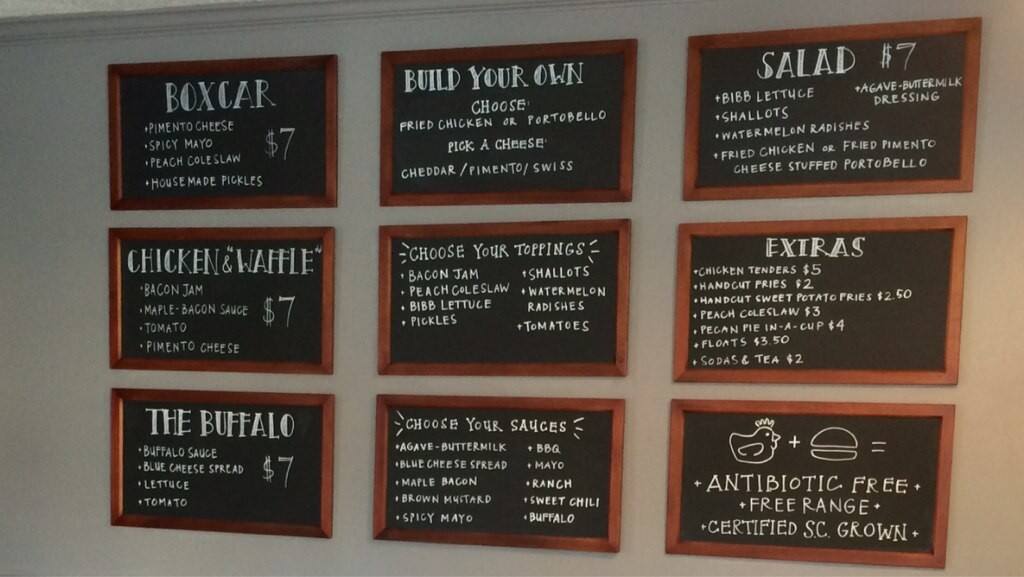 BOXCAR
•PIMENTO CHEESE
•SPICY MAYO
•PEACH COLESLAW
•HOUSEMADE PICKLES
$7
BUILD YOUR OWN
CHOOSE:
FRIED CHICKEN OR PORTOBELLO
PICK A CHEESE:
CHEDDAR/PIMENTO/SWISS
SALAD $7
•BIBB LETTUCE
•SHALLOTS
•WATERMELON RADISHES
•FRIED CHICKEN OR FRIED PIMENTO
CHEESE STUFFED PORTOBELLO
•AGAVE-BUTTERMILK
DRESSING
CHICKEN & "WAFFLE"
•BACON JAM
•MAPLE-BACON SAUCE
•TOMATO
•PIMENTO CHEESE
$7
CHOOSE YOUR TOPPINGS
•BACON JAM
•PEACH COLESLAW
•BIBB LETTUCE
•PICKLES
•SHALLOTS
•WATERMELON
RADISHES
•TOMATOES
EXTRAS
•CHICKEN TENDERS $5
•HANDCUT FRIES $2
•HANDCUT SWEET POTATO FRIES $2.50
•PEACH COLESLAW $3
•PECAN PIE IN-A-CUP $4
•FLOATS $3.50
•SODAS & TEA $2
THE BUFFALO
•BUFFALO SAUCE
•BLUE CHEESE SPREAD
•LETTUCE
•TOMATO
$7
CHOOSE YOUR SAUCES
•AGAVE-BUTTERMILK
•BLUE CHEESE SPREAD
•MAPLE BACON
•BROWN MUSTARD
•SPICY MAYO
•BBQ
•MAYO
•RANCH
•SWEET CHILI
•BUFFALO
+ =
• ANTIBIOTIC FREE •
• FREE RANGE •
• CERTIFIED S.C. GROWN •